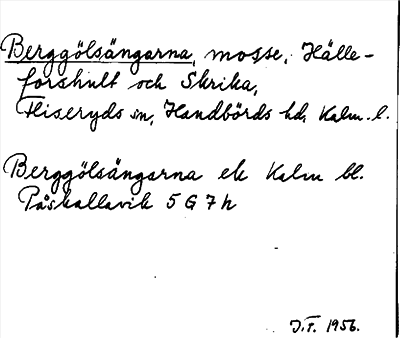 Berggölsängarna, mosse, Hälle-
forshult och Skrika,
Fliseryds sn, Handbörds hd, Kalm. l.
Berggölsängarna ek Kalm bl.
Påskallavik 5 G 7 h
J.F. 1956.